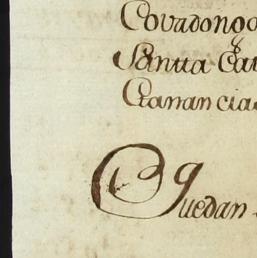 Covadonga
Santta Cat
Ganancia
Quedan